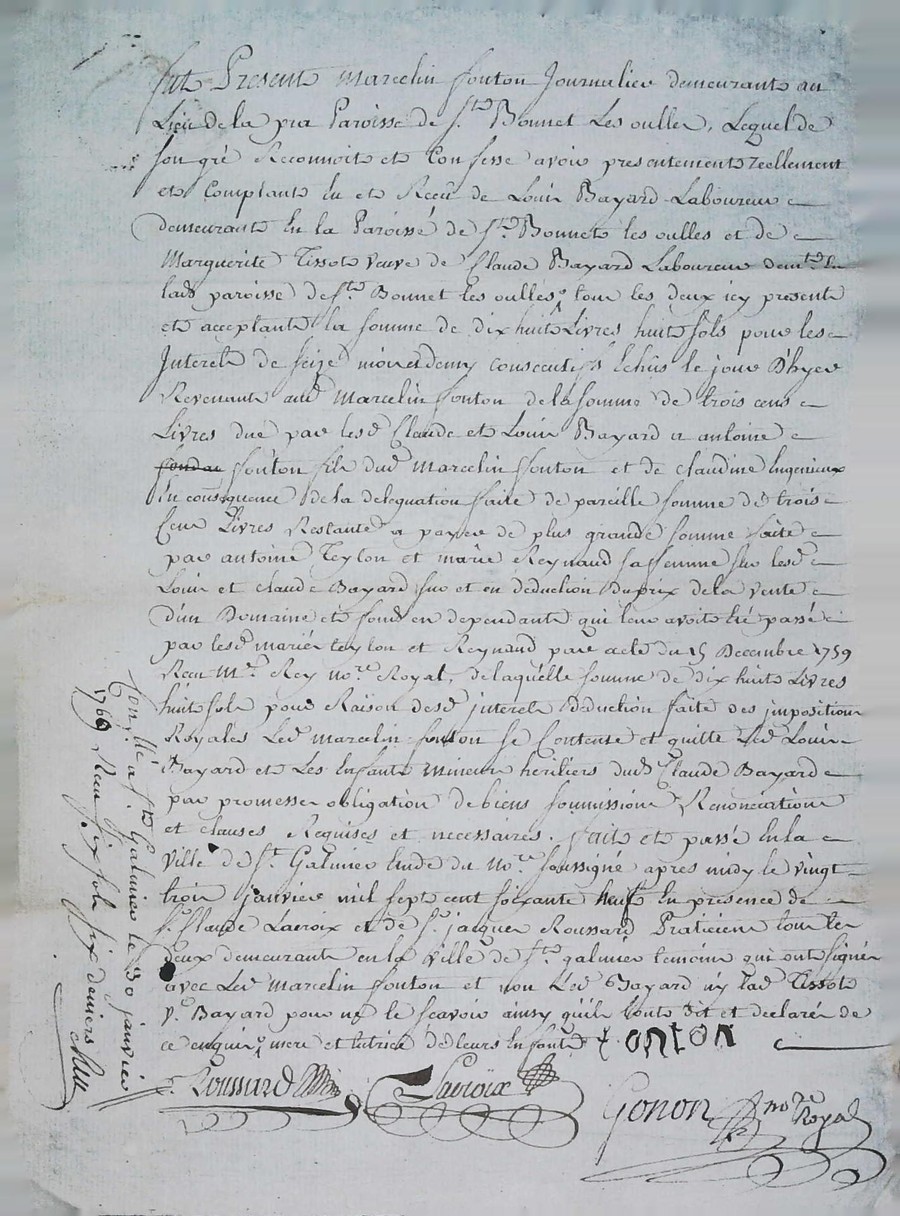 fut Present marcelin fonton Journalier demeurant au
Lieu de la pra Paroisse de st Bonnet Les oulles, Lequel de
son gré Reconnoit et Confesse avoir presentement reellement
et Comptant Eu et Receu de Louis Bayard Laboureur
demeurant En la Paroisse de st Bonnet les oulles et de
Marguerite Tissot veuve de Claude Bayard Laboureur demte En
lad paroisse de st Bonnet les oulles, tous les deux icy present
et acceptant la somme de dix huit Livres huit sols pour les
Interets de seize mois et demy consecutifs Echus le jour D'hyer
Revenant aud marcelin fonton de la somme de trois cens
Livres due par lesd Claude et Louis Bayard a antoine
fonton fils dud marcelin fonton et de claudine Ingenieux
En consequence de la deleguation faite de pareille somme de trois
Cens Livres Restante a payer de plus grande somme faite
par antoine Teylon et marie Reynaud sa femme sur lesd
Louis et claude Bayard sur et en deduction Du prix de la vente
d'un Domaine et fonds en dependants qui leur avoit été passé
par lesd mariés teylon et Reynaud par acte du 15 Decembre 1759
Receu Me Rey nore Royal, de laquelle somme de dix huit Livres
huit sols pour Raison desd interets deduction faite des impositions
Royales Led marcelin fonton se Contente et quitte Led Louis
Bayard et Les Enfants mineurs heritiers dud Claude Bayard
par promesses obligation de biens soumissions Renonciations
et clauses Requises et necessaires. fait et passé En la
ville de St Galmier Etude du nore soussigné apres midy le vingt
trois janvier mil sept cent soixante neuf En presence de
sr Claude Lacroix et de sr jacques Roussard Praticiens tous les
deux demeurant en la ville de st galmier temoins qui ont signé
avec Led marcelin fonton et non Led Bayard ny lad Tissot
ve Bayard pour ne le scavoir ainsy qu'ils l'ont dit et declaré de
ce enquis, mere et tutrice de leurs Enfants fonton
Roussard Lacroix
Gonon nore Royal
Conllé a st Galmier le 30 janvier
1769 Receu six sols six deniers